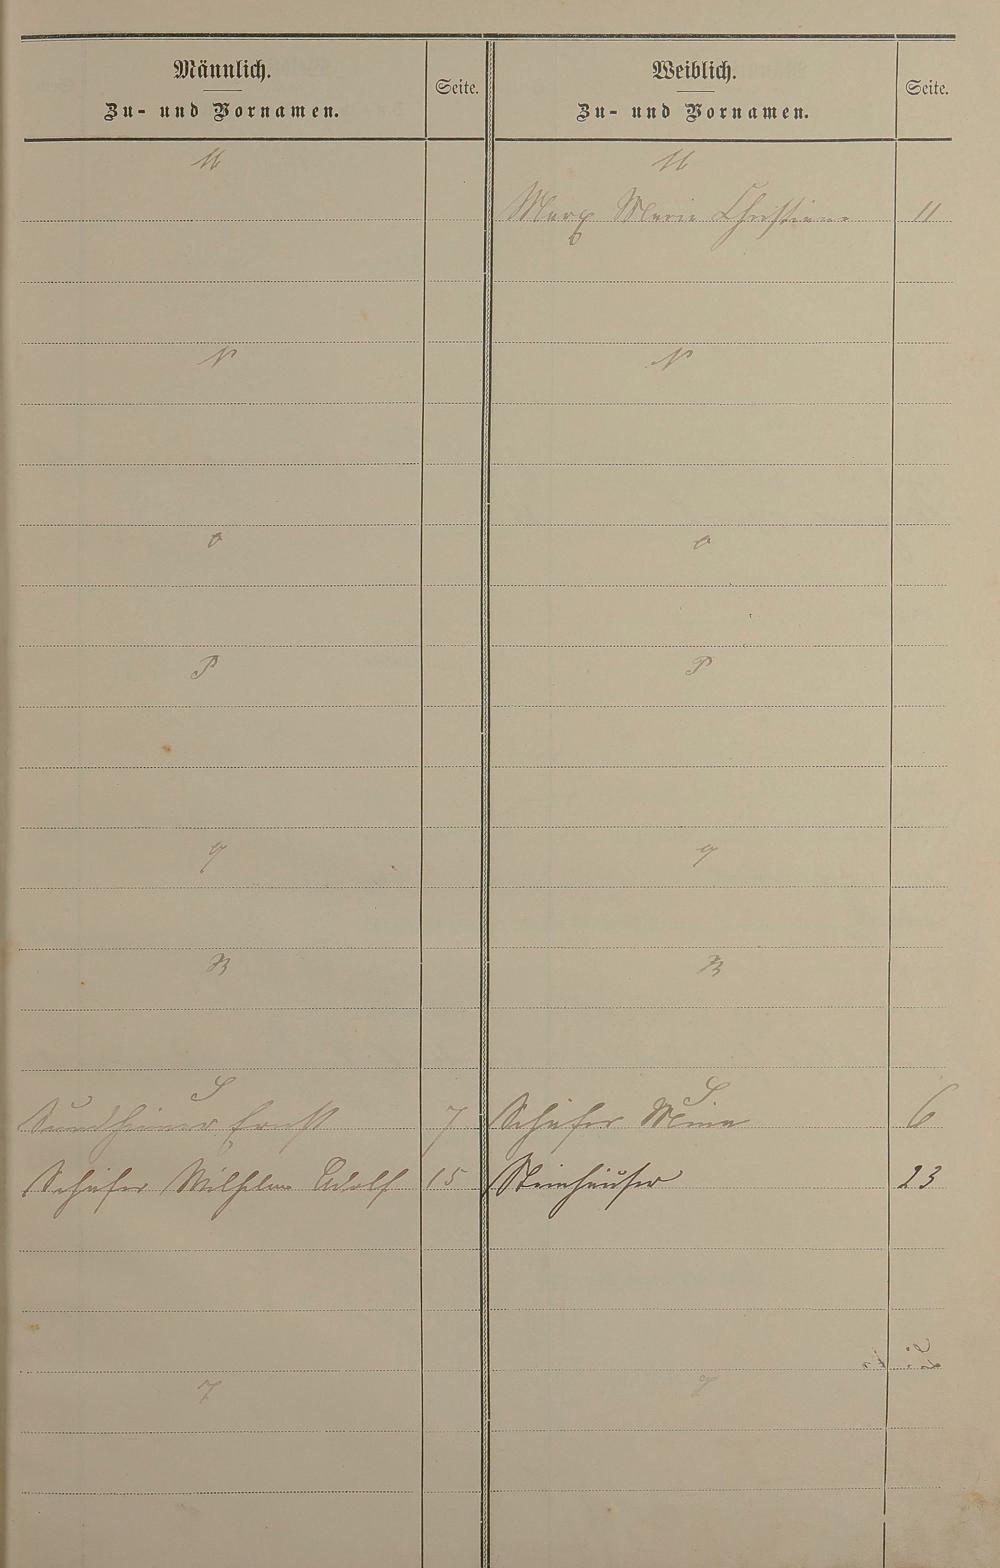 Männlich.
Zu- und Vornamen.
Seite.
Weiblich.
Zu- und Vornamen.
Seite.
M M
Marx Marie Christiane 11
N N
O O
P P
Q Q
R R
S S
Sundheimer Ernst 7 Schäfer Mina 6
Schäfer Wilhelm Adolf 15 Steinhäuser 23
T T